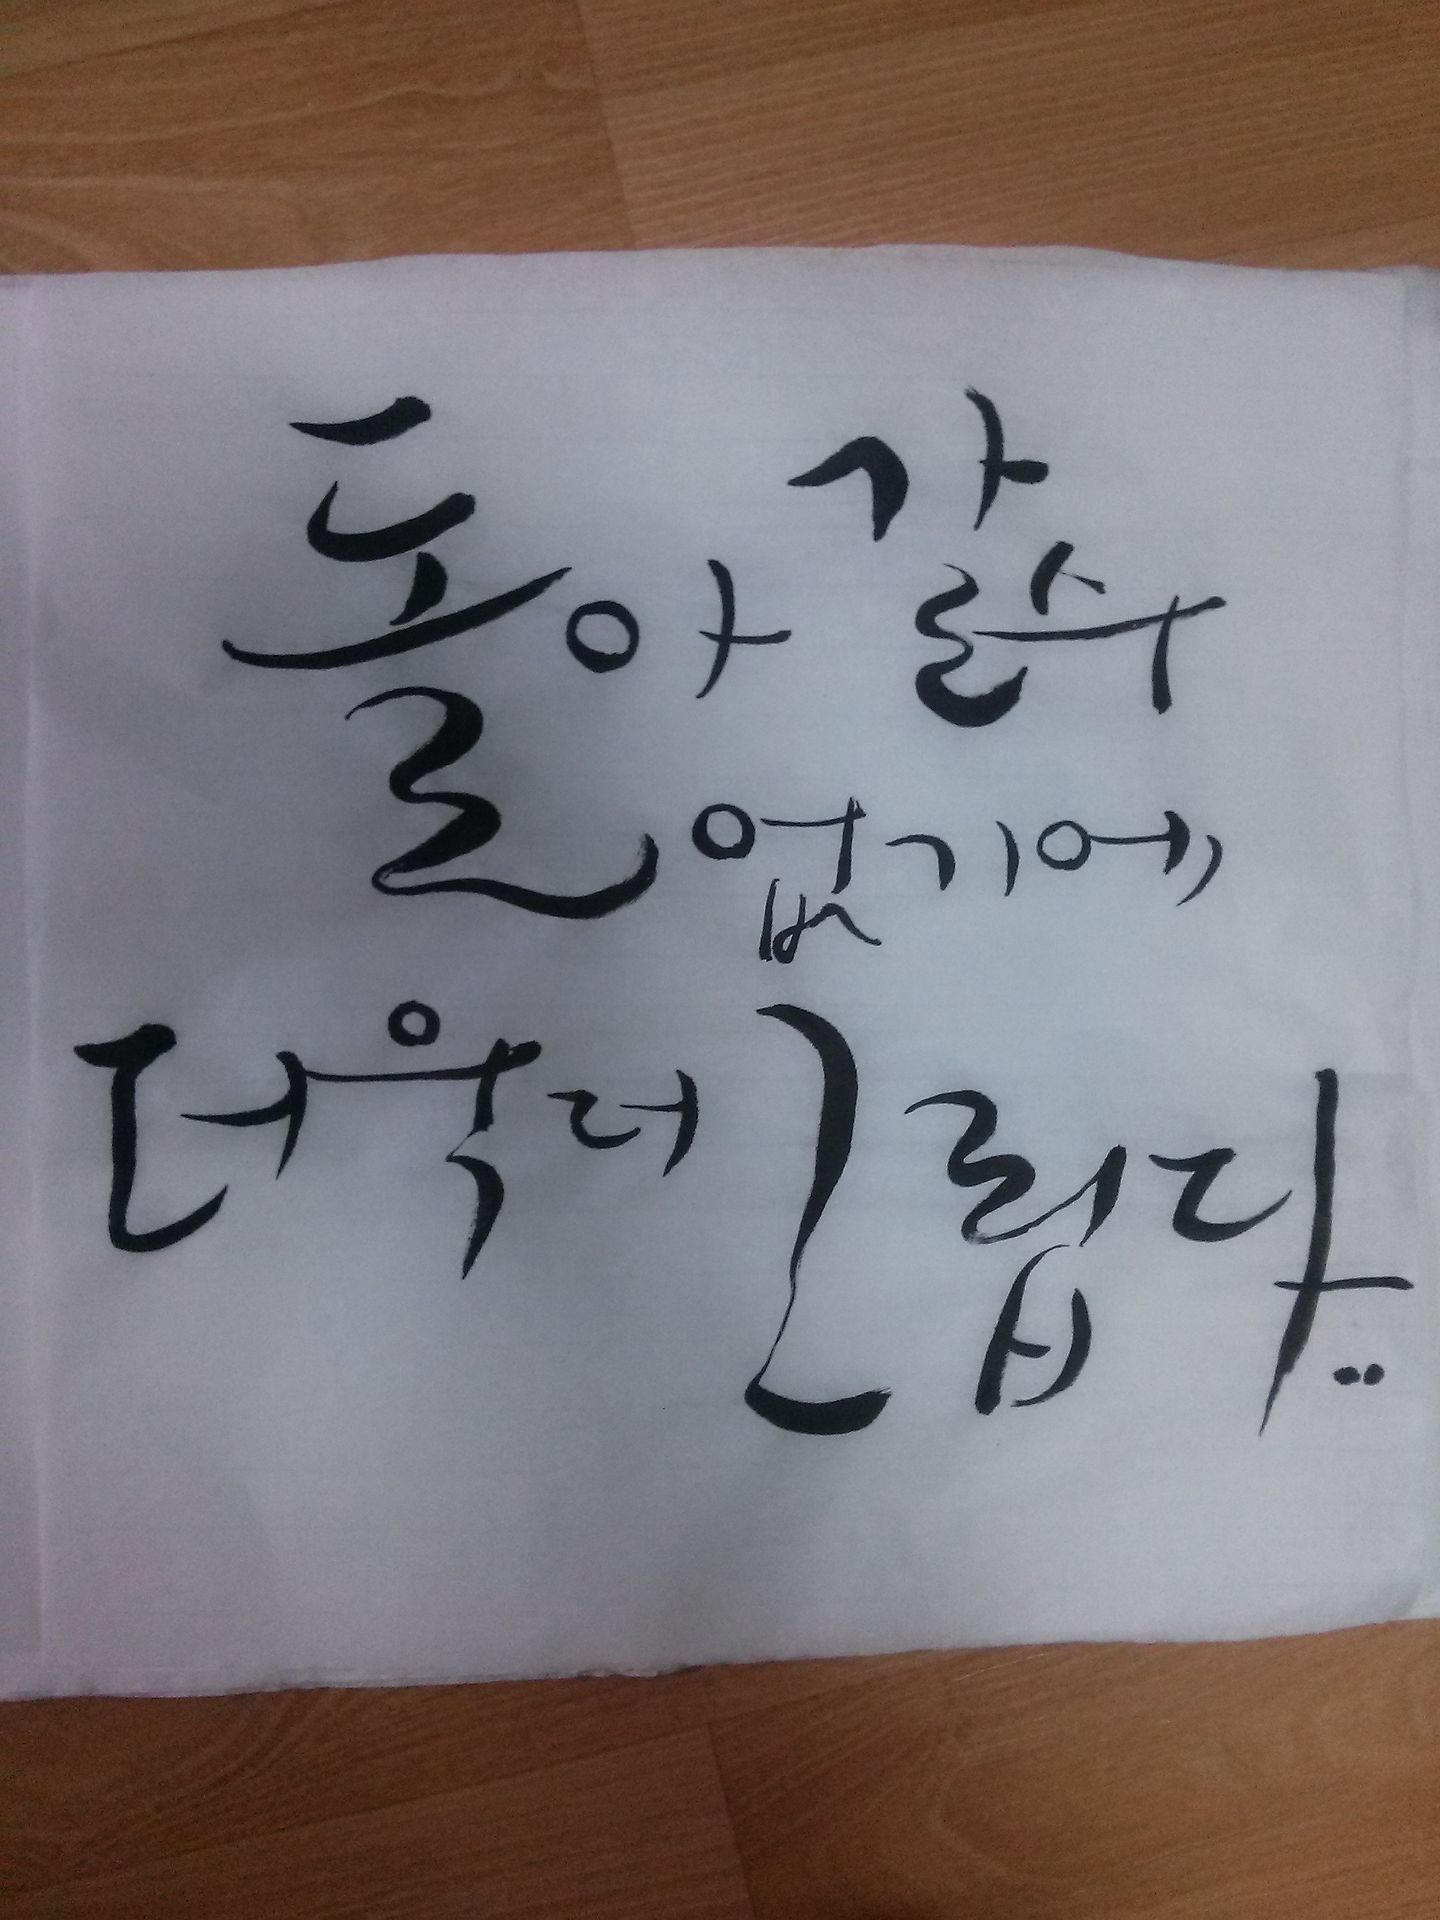 돌아갈수
없기에
더욱더 그립다..